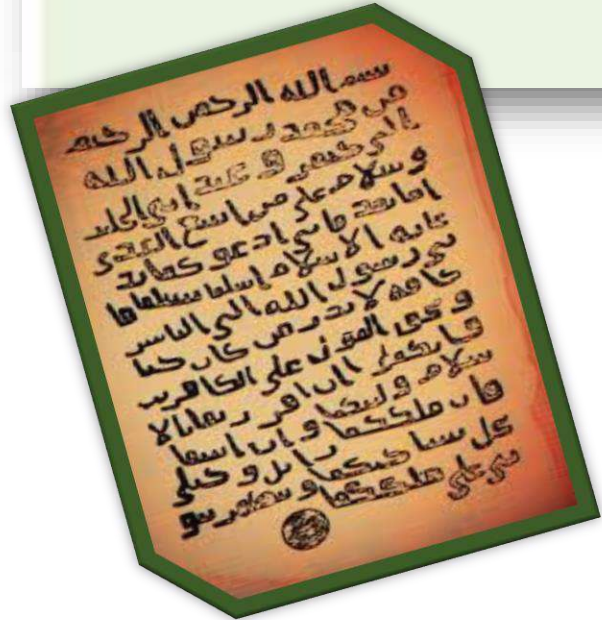 بسم الله الرحمن الرحيم
من محمد رسول الله
الى جيفر و عبد ابني الجلند
و سلام على من اتبع الهدى
اما بعد فاني ادعوكما بد
عاية الاسلام اسلما تسلما فا
ني رسول الله الى الناس
كافة لانذر من كان حيا
و يحق القول على الكافرين
فانكما ان اقررتما بالا
سلام وليتكما و ان ابيتما
فان ملككما زايل و خيلي
تحل بساحتكما و تظهر نبو
تي على ملككما